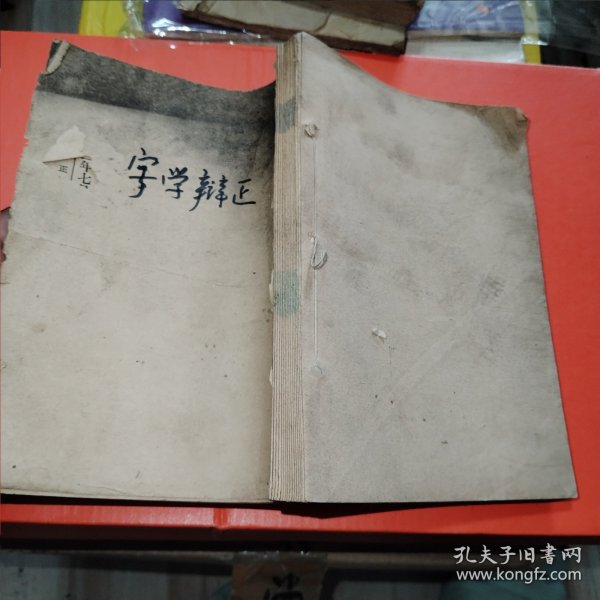 字学辩正
孔夫子旧书网
www.kongfz.com